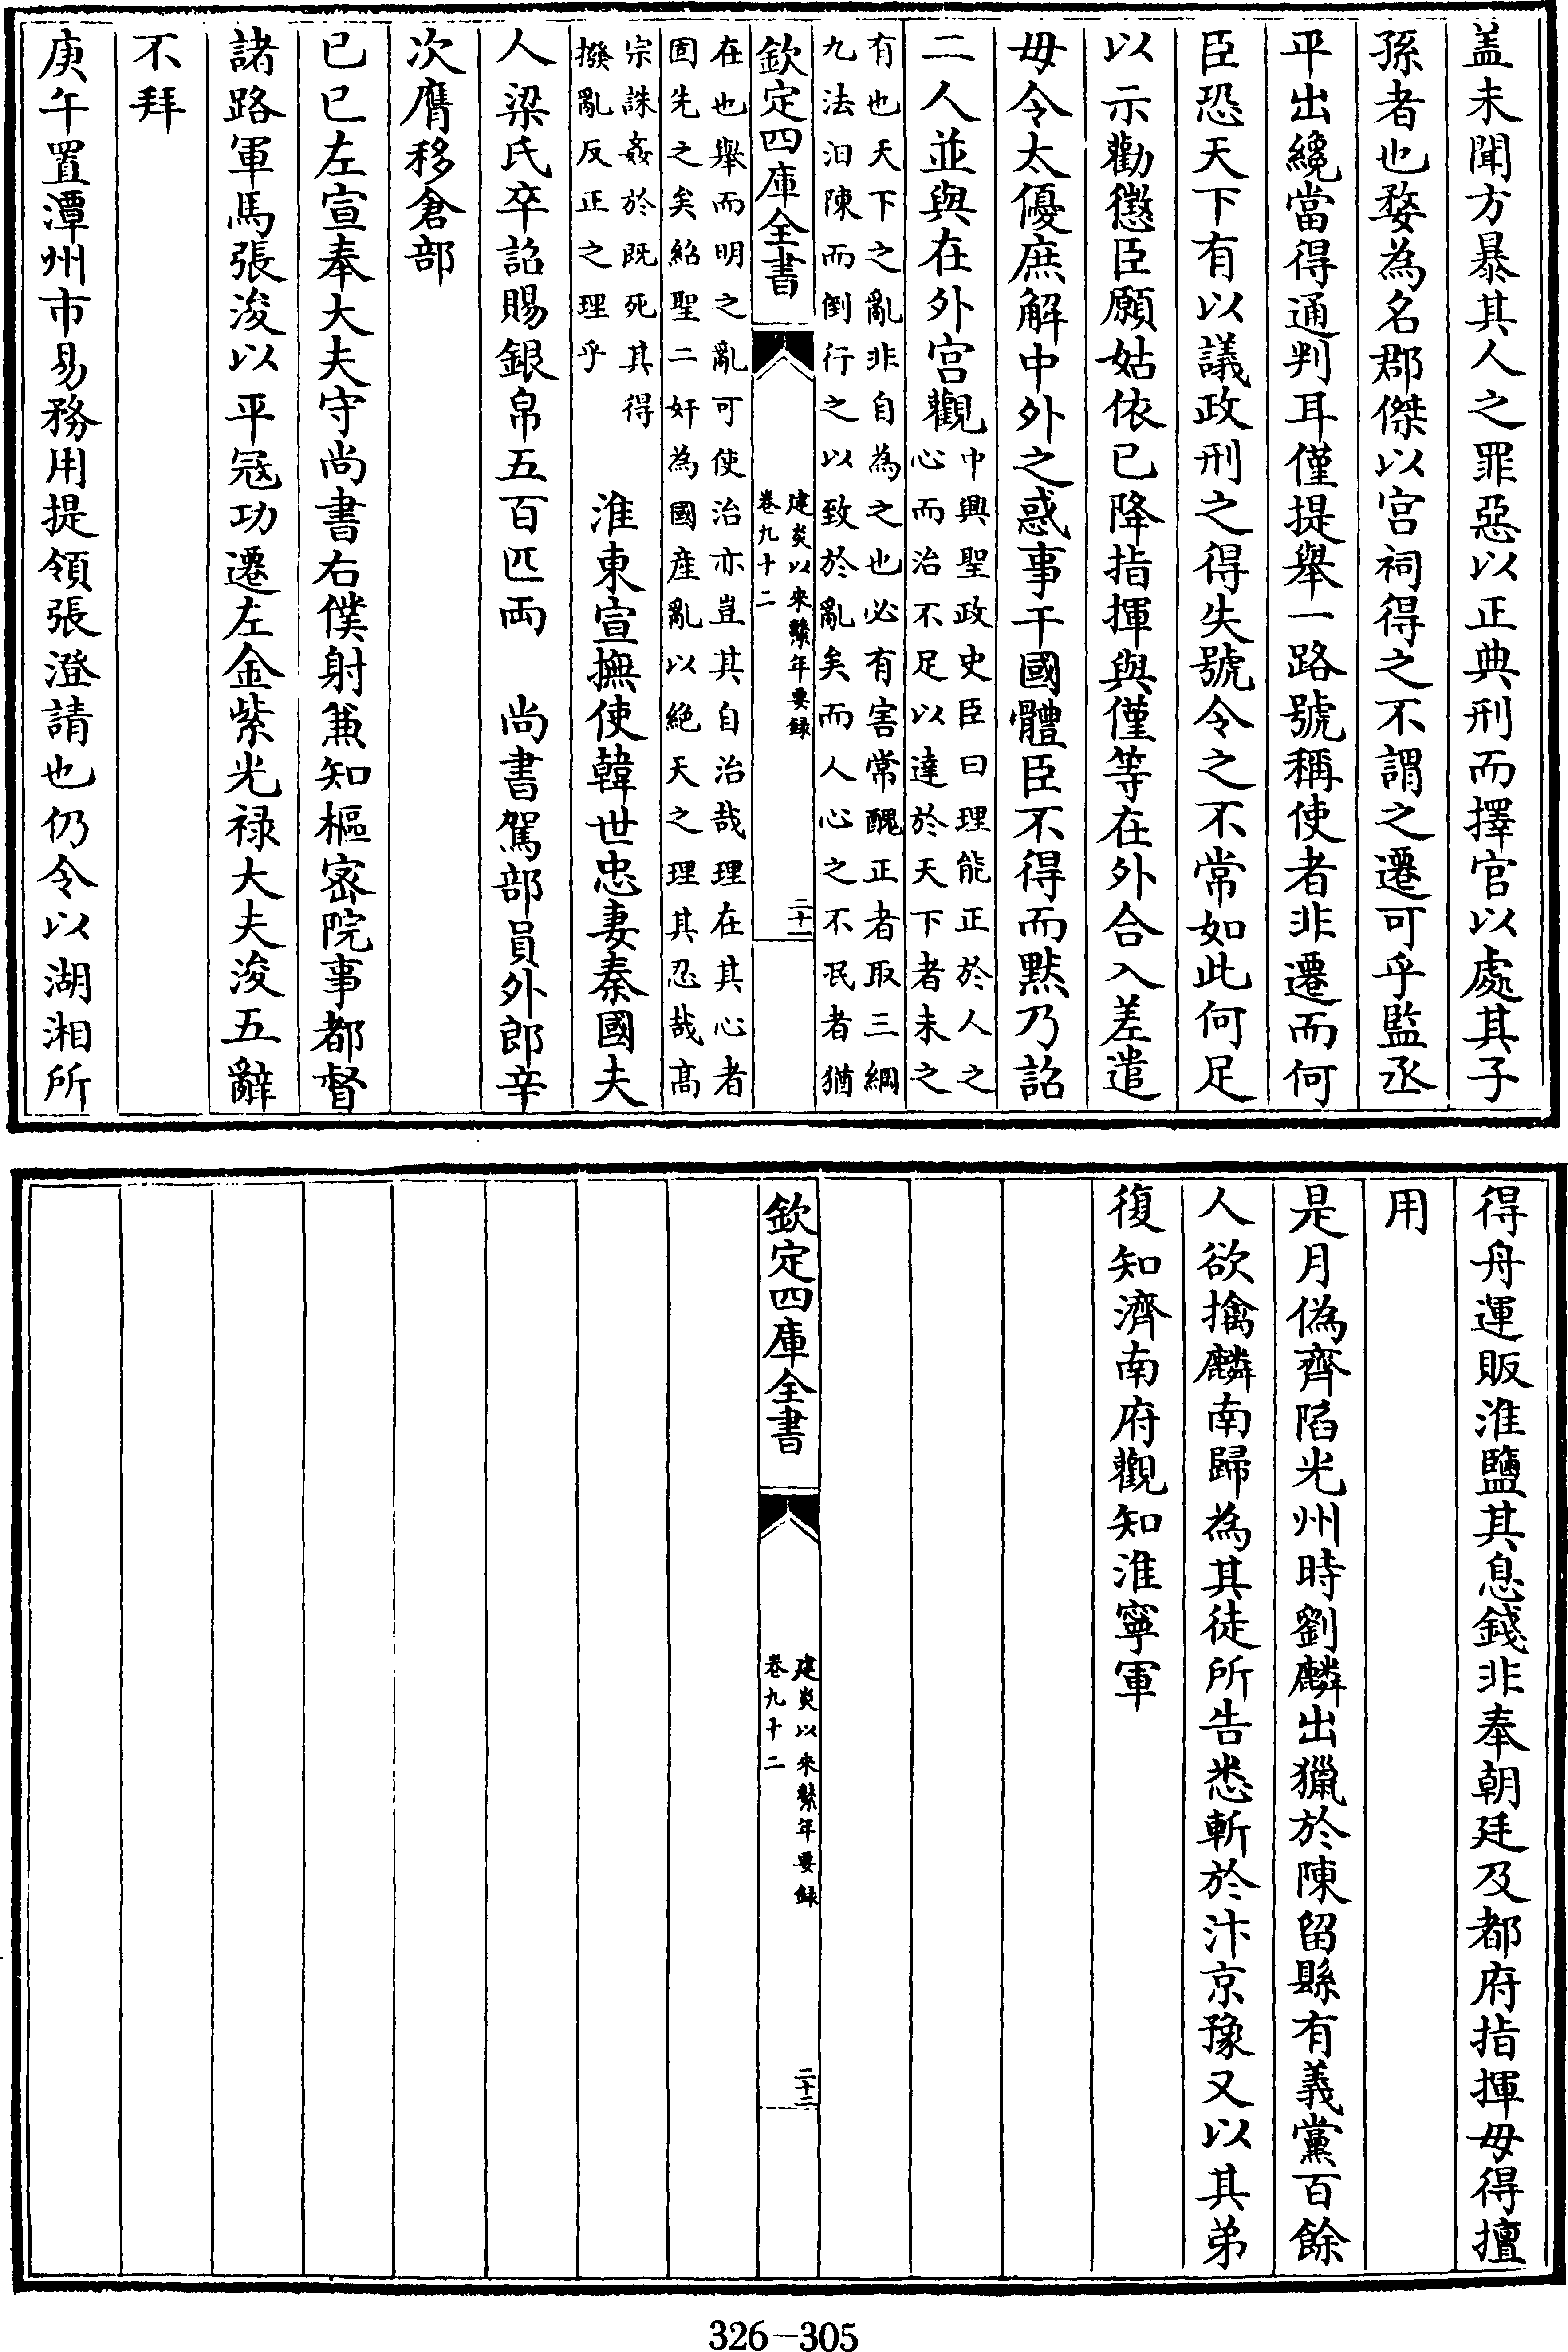 盖未聞方暴其人之罪惡以正典刑而擇官以處其子
孫者也婺為名郡傑以宫祠得之不謂之遷可乎監丞
平出纔當得通判耳僅提舉一路號稱使者非遷而何
臣恐天下有以議政刑之得失號令之不常如此何足
以示勸懲臣願姑依已降指揮與僅等在外合入差遣
毋令太優庶解中外之惑事干國體臣不得而黙乃詔
二人並與在外宫觀
中興聖政史臣曰理能正於人之
心而治不足以達於天下者未之
有也天下之亂非自為之也必有害常醜正者取三綱
九法汨陳而倒行之以致於亂矣而人心之不泯者猶
欽定四庫全書
建炎以來繫年要録
卷九十二
二十一
在也舉而明之亂可使治亦豈其自治哉理在其心者
固先之矣紹聖二奸為國産亂以絶天之理其忍哉髙
宗誅姦於既死其得
撥亂反正之理乎
淮東宣撫使韓世忠妻秦國夫
人梁氏卒詔賜銀帛五百匹両 尚書駕部員外郎辛
次膺移倉部
已巳左宣奉大夫守尚書右僕射兼知樞宻院事都督
諸路軍馬張浚以平冦功遷左金紫光禄大夫浚五辭
不拜
庚午置潭州市易務用提領張澄請也仍令以湖湘所
得舟運販淮鹽其息錢非奉朝廷及都府指揮毋得擅
用
是月偽齊陷光州時劉麟出獵於陳留縣有義黨百餘
人欲擒麟南歸為其徒所告悉斬於汴京豫又以其弟
復知濟南府觀知淮寧軍
欽定四庫全書
建炎以來繫年要録
卷九十二
二十二
326-305